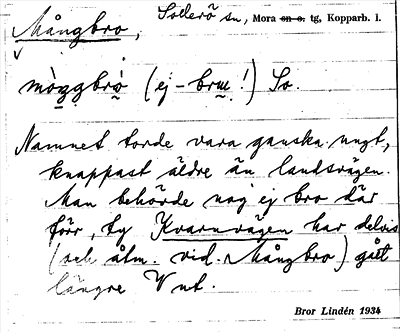 Mångbro, Sollerö sn, Mora sn o. tg, Kopparb. l.
mòggbrò (ej -bru!) So.
Namnet torde vara ganska ungt,
knappast äldre än landsvägen.
Man behövde nog ej bro där
förr, ty Kvarnvägen har delvis
(och åtm. vid Mångbro) gått
längre V ut.
Bror Lindén 1934